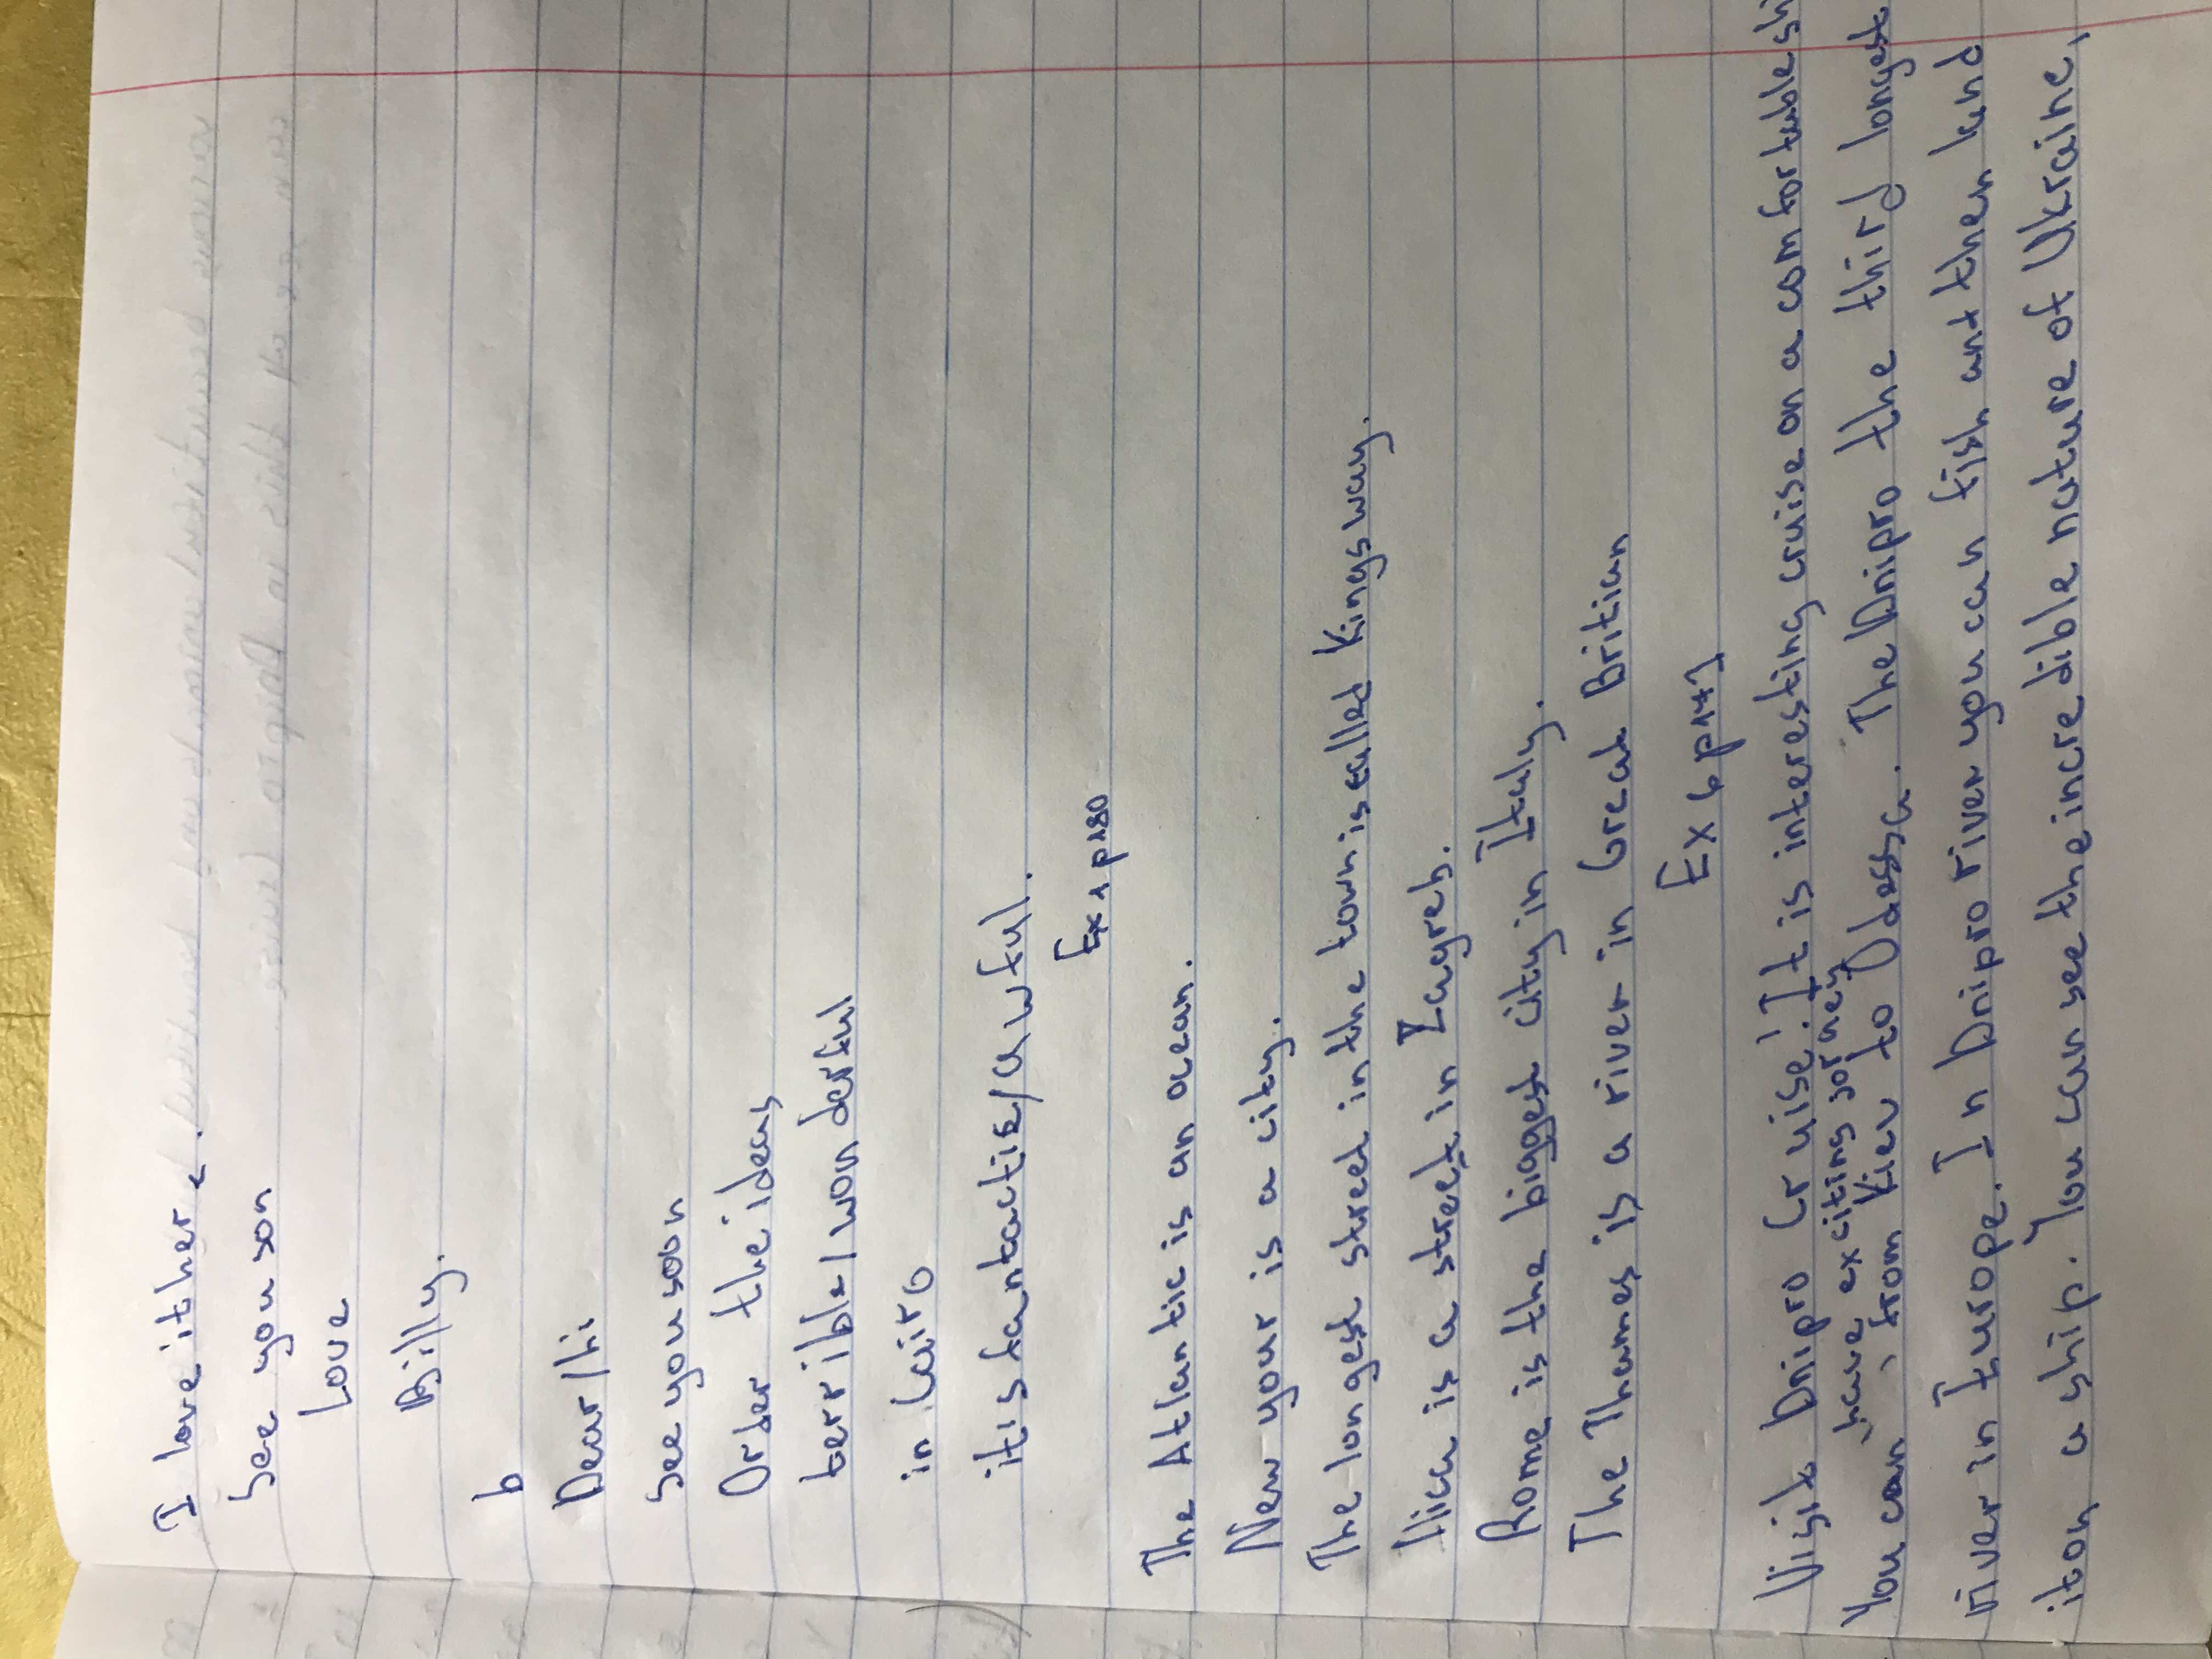 I love it her.
See you son
Love
Billy.
b
Dear/hi
see you soon
Order the ideas
terrible/wonderful
in Cairo
it is fantactic/awful.
Ex 1 p180
The Atlantic is an ocean.
New your is a city.
The longest street in the town is called Kingsway.
Ilica is a street in Zagreb.
Rome is the biggest city in Italy.
The Thames is a river in Great Britian
Ex 6 p147
Visit Dnipro Cruise! It is interesting cruise on a comfortable shi
have exciting jorney
You can, from Kiev to Odessa. The Dnipro the third longest
river in Europe. In Dnipro river you can fish and then kund
it on a ship. You can see the incredible nature of Ukraine,